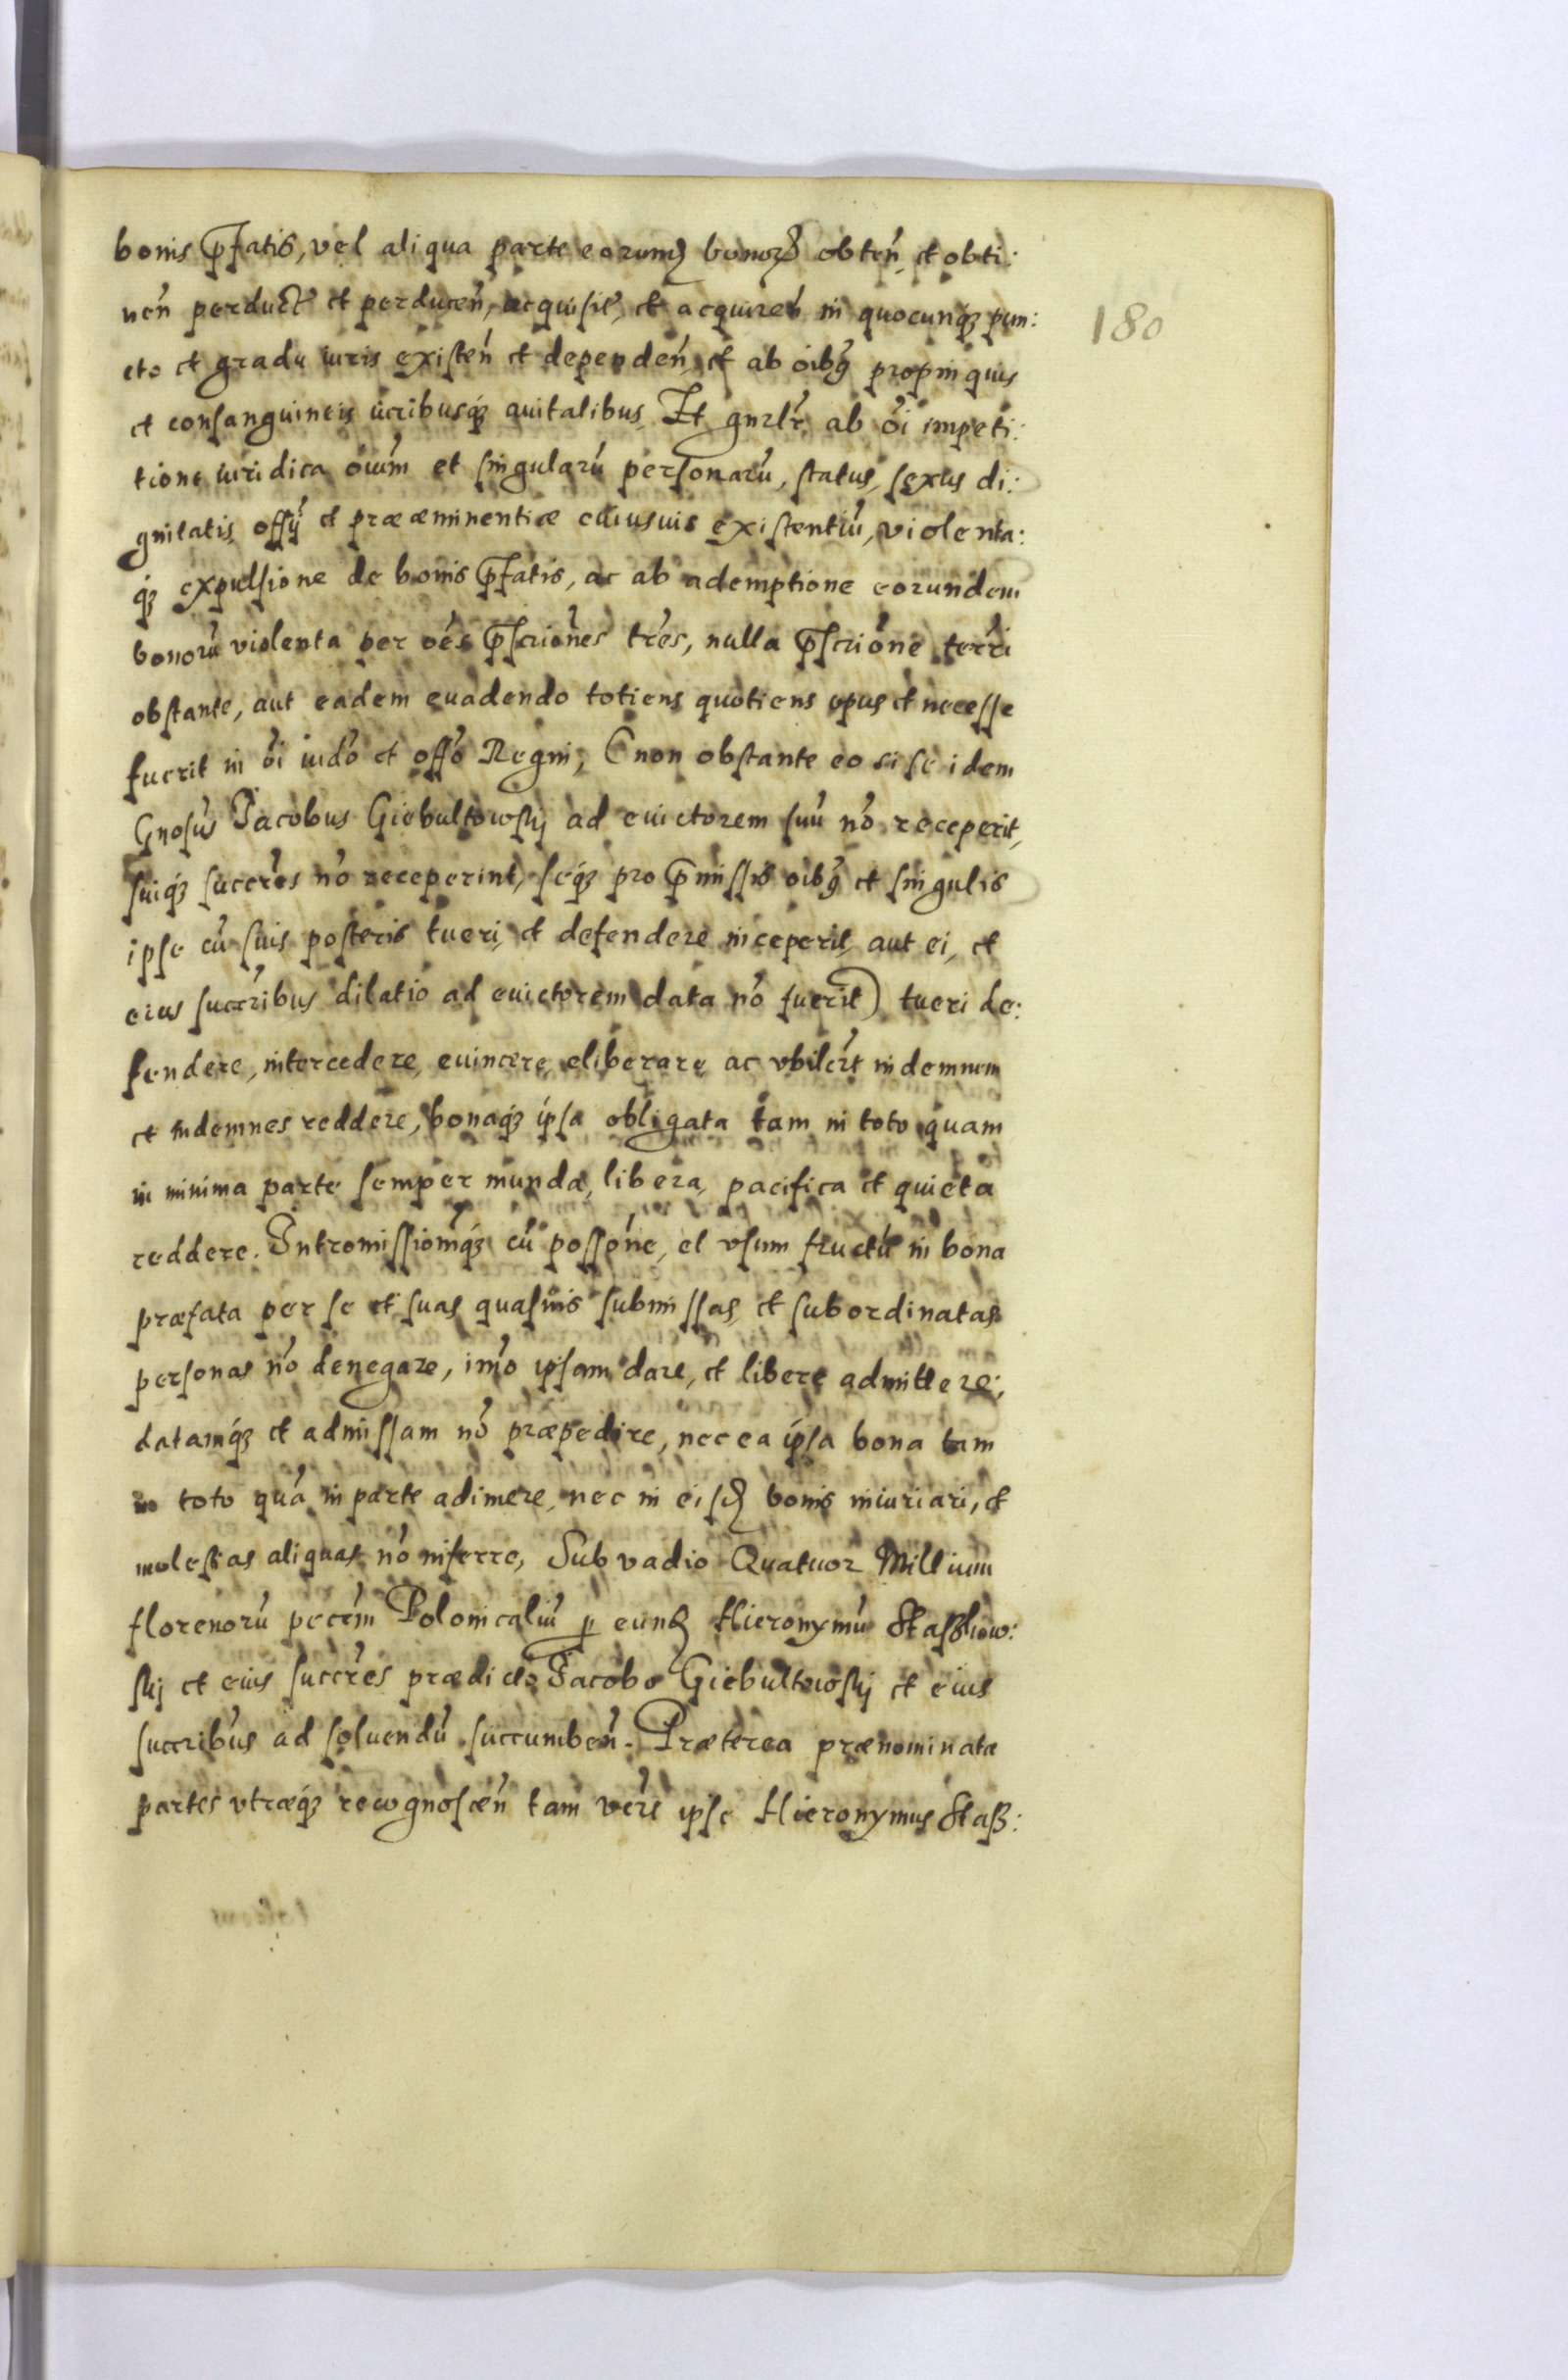 bonis p̄fatis, vel aliqua parte eorumd bonorꝫ obteń, et obti:
neń perduct et perduceń, acquisit, et acquireń in quocunqꝫ pun:
cto et gradu iuris existeń et dependeń, et ab oibꝰ propinquis
180
et consanguineis ucribusqꝫ auitalibus. Et gnrlr ab oi impeti:
tione iuridica oium et singularū personarū, status, sexus di:
gnitatis, offij et præeminentiæ cuiusuis existentiū, violenta:
qꝫ expulsione de bonis p̄fatis, ac ab ademptione eorundem
bonorū violenta per oes p̄scriones tres, nulla p̄scrione terri
obstante, aut eadem euadendo totiens quotiens opus et necesse
fuerit in oi iudo et offo Regni, (non obstante eo si se idem
Gnosus Jacobus Giebultowskj ad euictorem suū no receperit,
suiqꝫ succres no receperint, seqꝫ pro p̄missis oibꝰ et singulis
ipse cū suis posteris tueri, et defendere inceperit, aut ei, et
eius succribus dilatio ad euictorem data no fuerit) tueri de:
fendere, intercedere, euincere, eliberare ac vbilert indemnem
et indemnes reddere, bonaqꝫ ipsa obligata tam in toto quam
in minima parte semper munda, libera, pacifica et quieta
reddere. Intromissiomqꝫ cū possone, et vsum fructū in bona
præfata per se et suas quasuis submissas, et subordinatas
personas no denegare, imo ipsam dare, et libere admittere;
datamqꝫ et admissam no præpedire, nec ea ipsa bona tam
in toto quā in parte adimere, nec in eisd bonis iniuriari, et
molestias aliquas no inferre, Sub vadio Quatuor Millium
florenorū pecem Polonicaliū p eund Hieronymū Staszkow:
skj et eius succres prædicto Jacobo Giebultowskj et eius
succribus ad soluendū succumbeń. Præterea prænominatæ
partes vtræqꝫ recognosceń tam vers ipse Hieronymus Stasz: